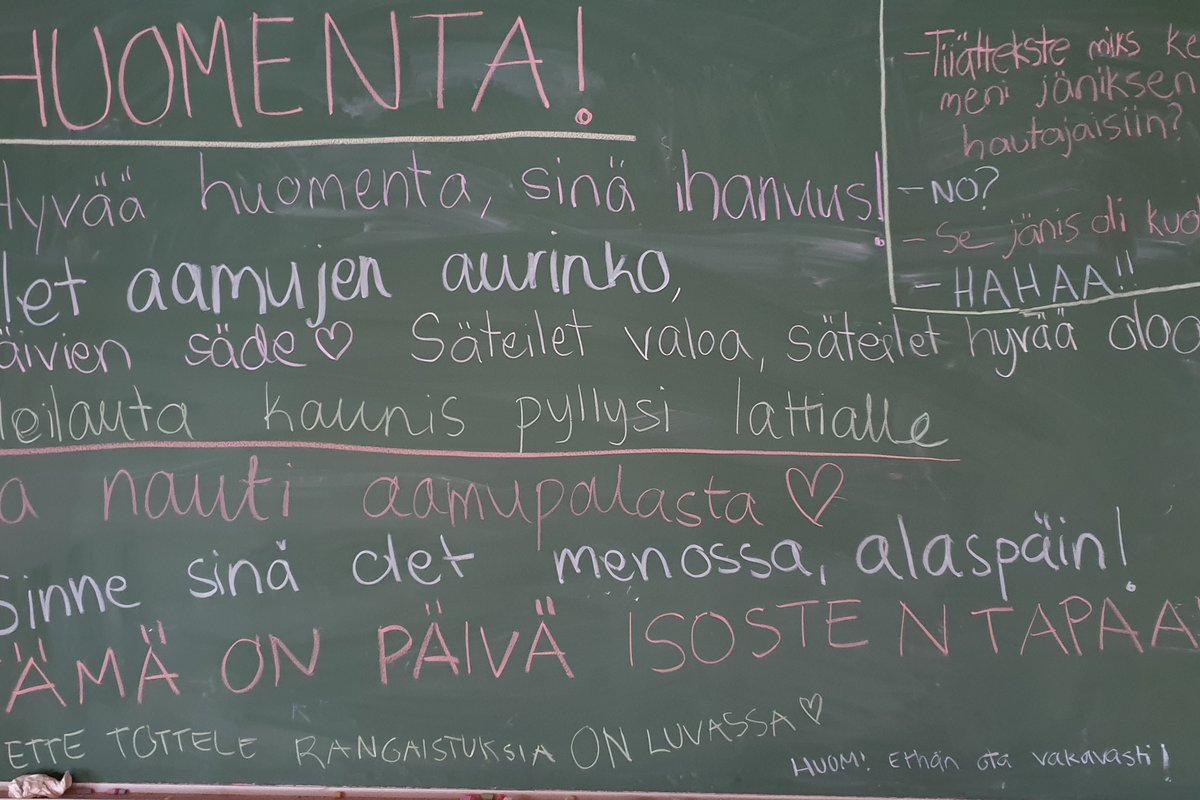 HUOMENTA!
Hyvää huomenta, sinä ihanuus!
let aamujen aurinko,
äivien säde♡ Säteilet valoa, säteilet hyvää oloa
eilauta kaunis pyllysi lattialle
a nauti aamupalasta ♡
Sinne sinä olet menossa, alaspäin!
TÄMÄ ON PÄIVÄ ISOSTEN TAPAA
ETTE TOTTELE RANGAISTUKSIA ON LUVASSA ♡
HUOM! Ethän ota vakavasti!
-Tiiättekste miks ke
meni jäniksen
hautajaisiin?
- NO?
- Se jänis oli kuol
- HAHAA!!